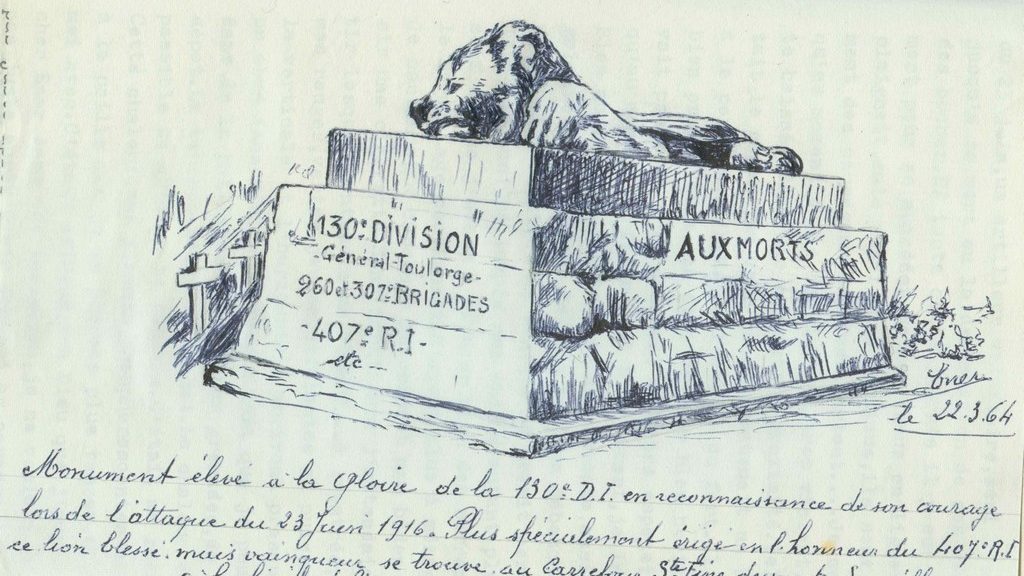 130e DIVISION
-Général-Toulorge-
260 et 307e BRIGADES
-407e R.I-
etc--
AUX MORTS
le 22.3.64
Monument élevé à la Gloire de la 130e D.I. en reconnaissance de son courage
lors de l'attaque du 23 Juin 1916. Plus spécialement érigé en l'honneur du 407e R.I
ce lion blessé mais vainqueur se trouve au Carrefour Ste Fine